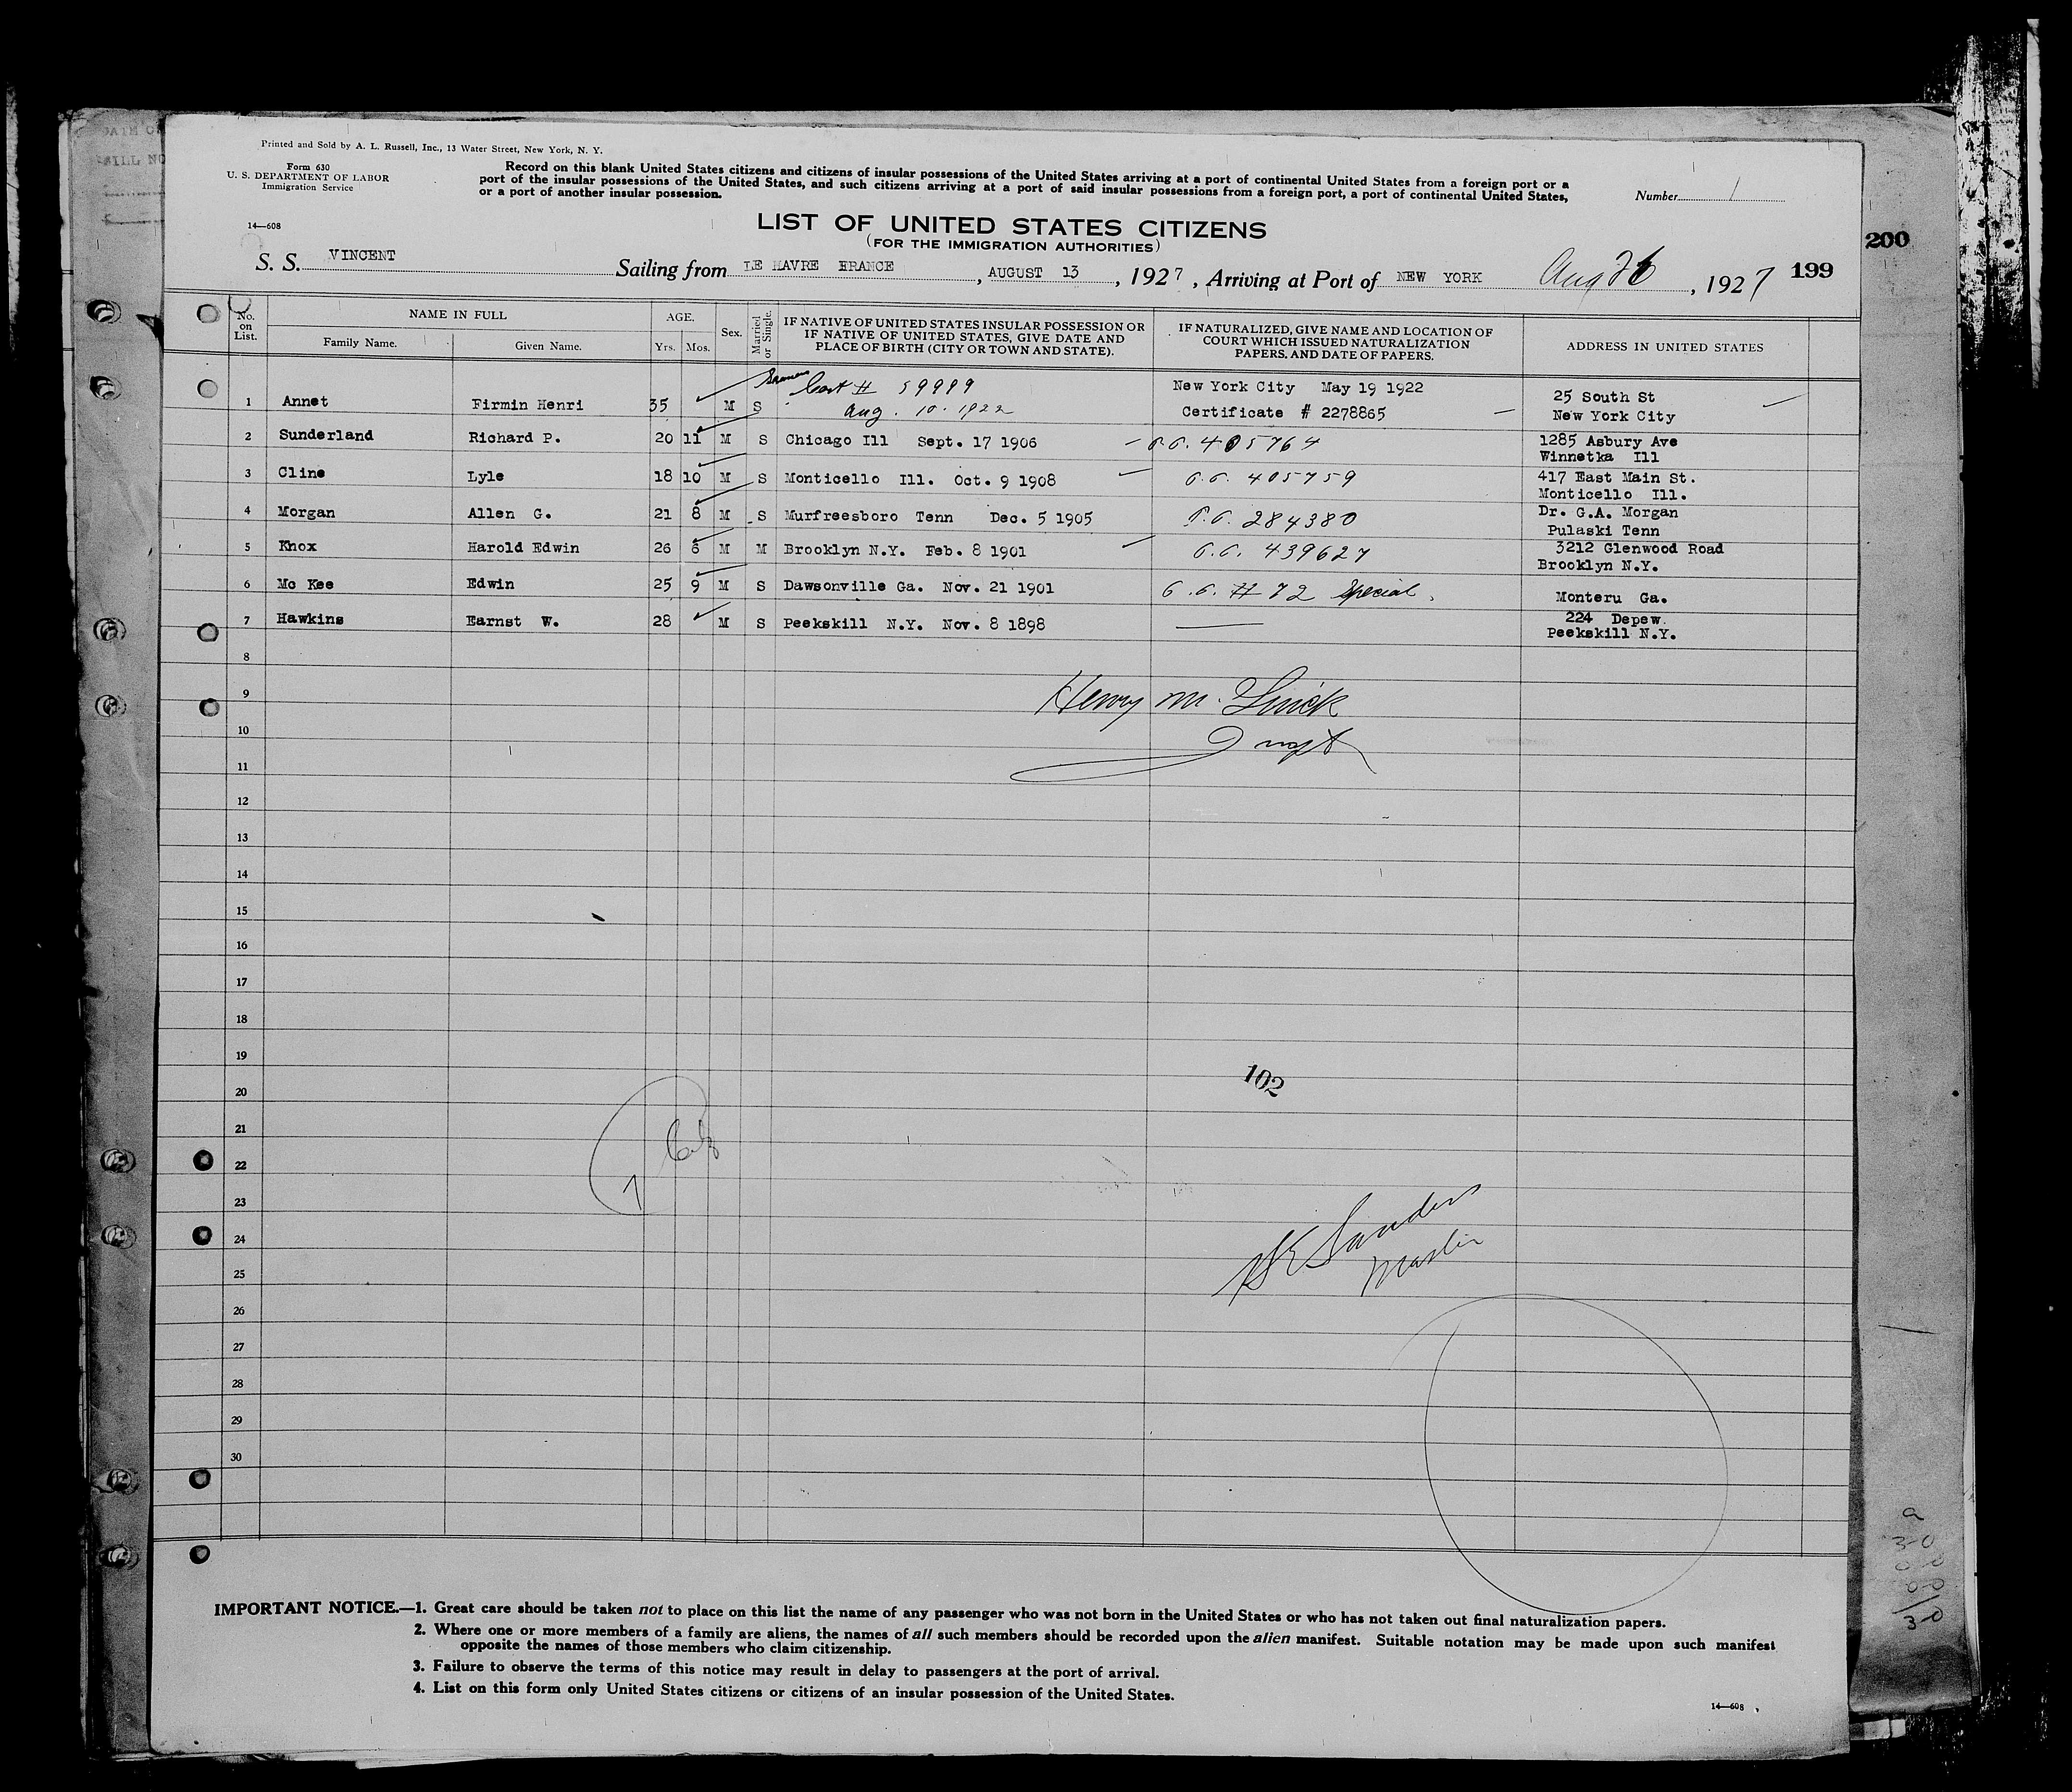 Printed and Sold by A. L. Russell, Inc., 13 Water Street, New York, N. Y.
Form 630
U. S. DEPARTMENT OF LABOR
Immigration Service
14—608
Record on this blank United States citizens and citizens of insular possessions of the United States arriving at a port of continental United States from a foreign port or a
port of the insular possessions of the United States, and such citizens arriving at a port of said insular possessions from a foreign port, a port of continental United States,
or a port of another insular possession.
Number 1
LIST OF UNITED STATES CITIZENS
(FOR THE IMMIGRATION AUTHORITIES)
200
S. S. VINCENT Sailing from LE HAVRE FRANCE, AUGUST 13, 1927, Arriving at Port of NEW YORK Aug 26, 1927 199
No. on List. NAME IN FULL Family Name. Given Name. AGE. Yrs. Mos. Sex. Married or Single. IF NATIVE OF UNITED STATES INSULAR POSSESSION OR IF NATIVE OF UNITED STATES, GIVE DATE AND PLACE OF BIRTH (CITY OR TOWN AND STATE). IF NATURALIZED, GIVE NAME AND LOCATION OF COURT WHICH ISSUED NATURALIZATION PAPERS, AND DATE OF PAPERS. ADDRESS IN UNITED STATES
Cert # 59999 New York City May 19 1922 25 South St
1 Annet Firmin Henri 35 M S Aug. 10. 1922 Certificate # 2278865 New York City
2 Sunderland Richard P. 20 11 M S Chicago Ill Sept. 17 1906 405764 1285 Asbury Ave
Winnetka Ill
3 Cline Lyle 18 10 M S Monticello Ill. Oct. 9 1908 405759 417 East Main St.
Monticello Ill.
4 Morgan Allen G. 21 8 M S Murfreesboro Tenn Dec. 5 1905 284380 Dr. G.A. Morgan
Pulaski Tenn
5 Knox Harold Edwin 26 6 M M Brooklyn N.Y. Feb. 8 1901 439627 3212 Glenwood Road
Brooklyn N.Y.
6 Mc Kee Edwin 25 9 M S Dawsonville Ga. Nov. 21 1901 # 72 Special.
Monteru Ga.
7 Hawkins Earnst W. 28 M S Peekskill N.Y. Nov. 8 1898 224 Depew.
Peekskill N.Y.
8
9
Henry M.
10
11
12
13
14
15
16
17
18
19
102
20
21
22
7
23
24
Sanders
Master
25
26
27
28
29
30
IMPORTANT NOTICE.—1. Great care should be taken not to place on this list the name of any passenger who was not born in the United States or who has not taken out final naturalization papers.
2. Where one or more members of a family are aliens, the names of all such members should be recorded upon the alien manifest. Suitable notation may be made upon such manifest
opposite the names of those members who claim citizenship.
3. Failure to observe the terms of this notice may result in delay to passengers at the port of arrival.
4. List on this form only United States citizens or citizens of an insular possession of the United States.
14—608